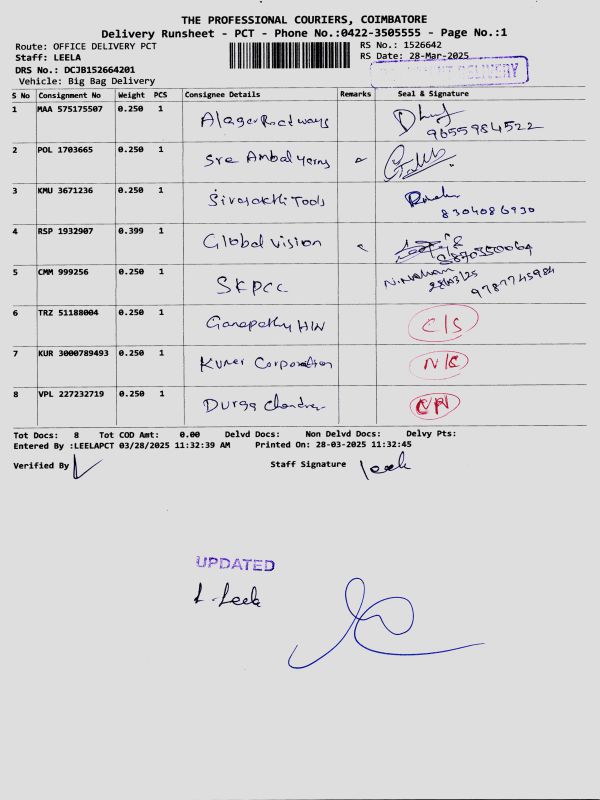 THE PROFESSIONAL COURIERS, COIMBATORE
Delivery Runsheet - PCT - Phone No.:0422-3505555 - Page No.:1
Route: OFFICE DELIVERY PCT RS No.: 1526642
Staff: LEELA RS Date: 28-Mar-2025
DRS No.: DCJB152664201 DELIVERY
Vehicle: Big Bag Delivery
S No Consignment No Weight PCS Consignee Details Remarks Seal & Signature
1 MAA 575175507 0.250 1 Alager Roadways
9655984522
2 POL 1703665 0.250 1 Sre Ambal Yerns
3 KMU 3671236 0.250 1 Sivasakthi Tools
8304086930
4 RSP 1932907 0.399 1 Global vision
5 CMM 999256 0.250 1 SKPCC
28/03/25
9787745984
6 TRZ 51188004 0.250 1 Ganapathy H/W C/S
7 KUR 3000789493 0.250 1 Kumer Corporation N/C
8 VPL 227232719 0.250 1 Durga Chandran
Tot Docs: 8 Tot COD Amt: 0.00 Delvd Docs: Non Delvd Docs: Delvy Pts:
Entered By :LEELAPCT 03/28/2025 11:32:39 AM Printed On: 28-03-2025 11:32:45
Verified By Staff Signature Leela
UPDATED
L. Leela